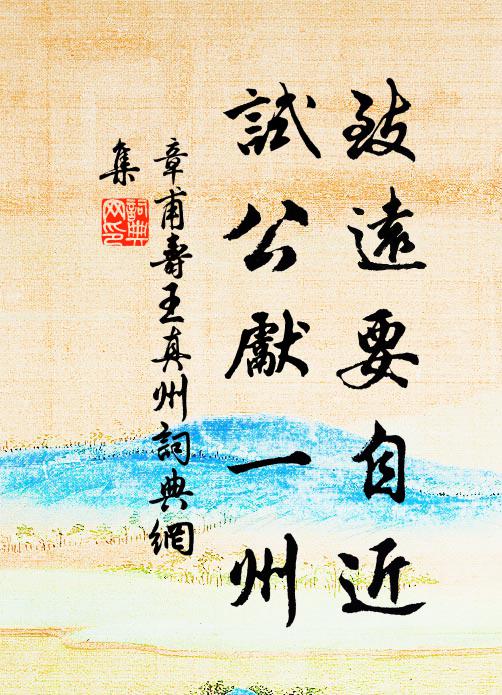 致遠要自近
試公獻一州
章甫壽王真州詞典網
集
詞典
网印